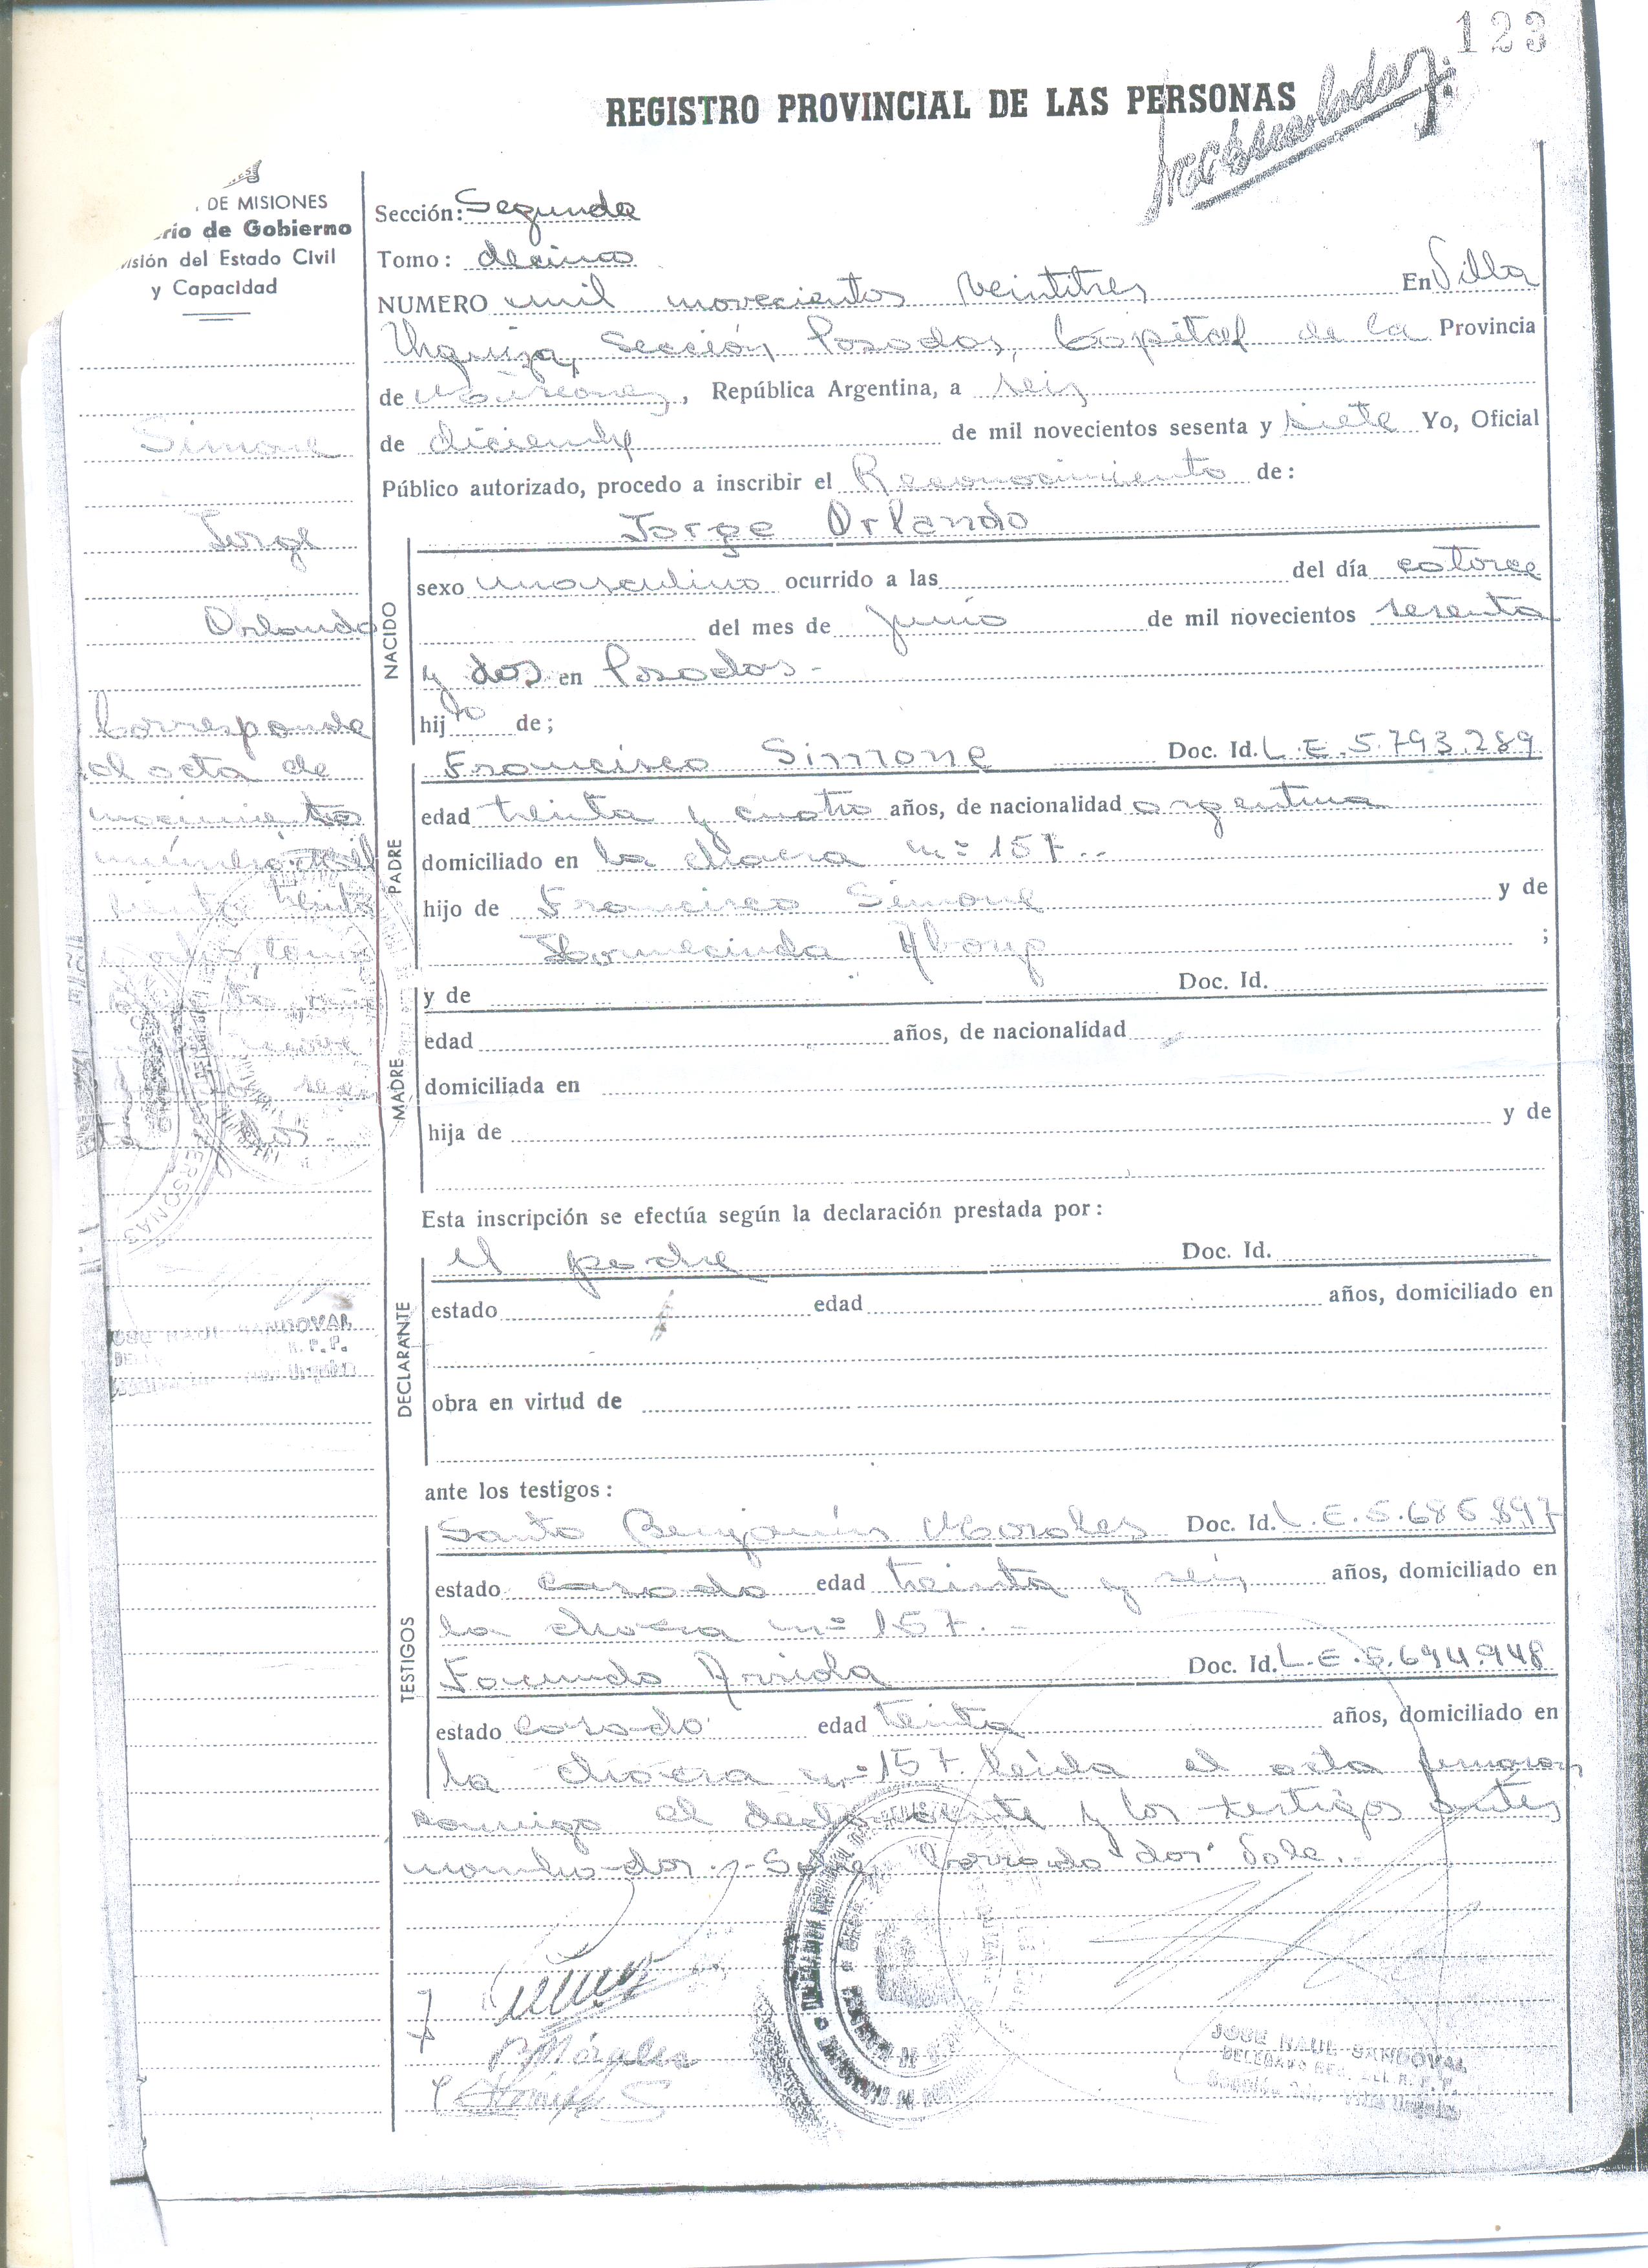 123
REGISTRO PROVINCIAL DE LAS PERSONAS
DE MISIONES
rio de Gobierno
isión del Estado Civil
y Capacidad
Simone
Jorge
Orlando
Corresponde
al acta de
nacimiento
número mil
ciento treinta
y ocho, tomo
dos.-
JOSE RAUL SANDOVAL
Sección: Segunda
Tomo: decimo
NUMERO mil novecientos veintitres En Villa
Urquiza, Sección Posadas, Capital de la Provincia
de Misiones, República Argentina, a seis
de diciembre de mil novecientos sesenta y siete Yo, Oficial
Público autorizado, procedo a inscribir el Reconocimiento de:
NACIDO
Jorge Orlando
sexo masculino ocurrido a las del día catorce
del mes de junio de mil novecientos sesenta
y dos en Posadas-
hijo de;
PADRE
Francisco Simone Doc. Id. L.E.5.793.289
edad treinta y cuatro años, de nacionalidad argentina
domiciliado en la chacra nº 157.-
hijo de Francisco Simone y de
;
MADRE
y de Doc. Id.
edad años, de nacionalidad
domiciliada en
hija de y de
Esta inscripción se efectúa según la declaración prestada por:
DECLARANTE
el padre Doc. Id.
estado edad años, domiciliado en
obra en virtud de
ante los testigos:
TESTIGOS
Santo Benjamín Morales Doc. Id. L.E.5.685.897
estado casado edad treinta y seis años, domiciliado en
la chacra nº 157.-
Facundo Arriola Doc. Id. L.E.5.644.948
estado casado edad treinta años, domiciliado en
la chacra nº 157. leida el acta firmaron
conmigo el declarante y los testigos antes
nombrados.- Sobre borrado dos Vale.-
B Morales
JOSE RAUL SANDOVAL